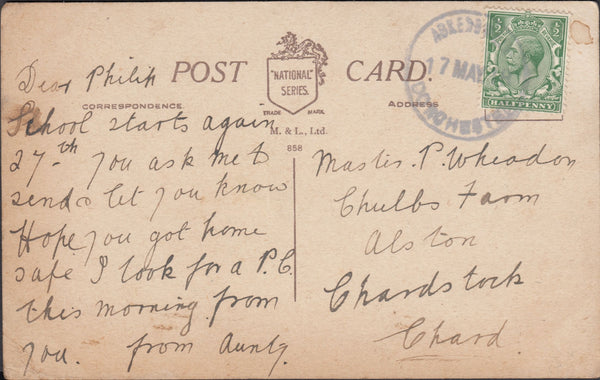 POST CARD.
"NATIONAL"
SERIES.
TRADE MARK.
CORRESPONDENCE
ADDRESS
M. & L., Ltd.
858
Dear Philip
School starts again
27-th you ask me to
send & let you know
Hope you got home
safe I look for a P.C.
this morning from
you. from Aunty.
Master. P. Wheadon
Chubbs Farm
Alston
Chardstock
Chard.
17 MAY
½ ½
HALFPENNY